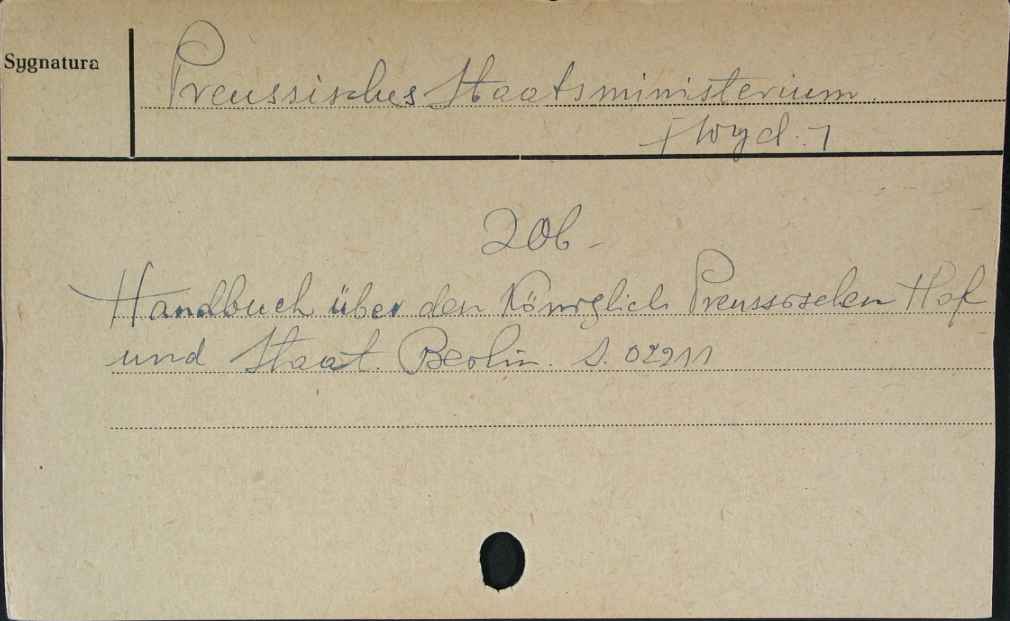 Sygnatura
Preussisches Staatsministerium
[wyd.]
Zob.
Handbuch über den Königlich Preussischen Hof
und Staat. Berlin. S. 02911